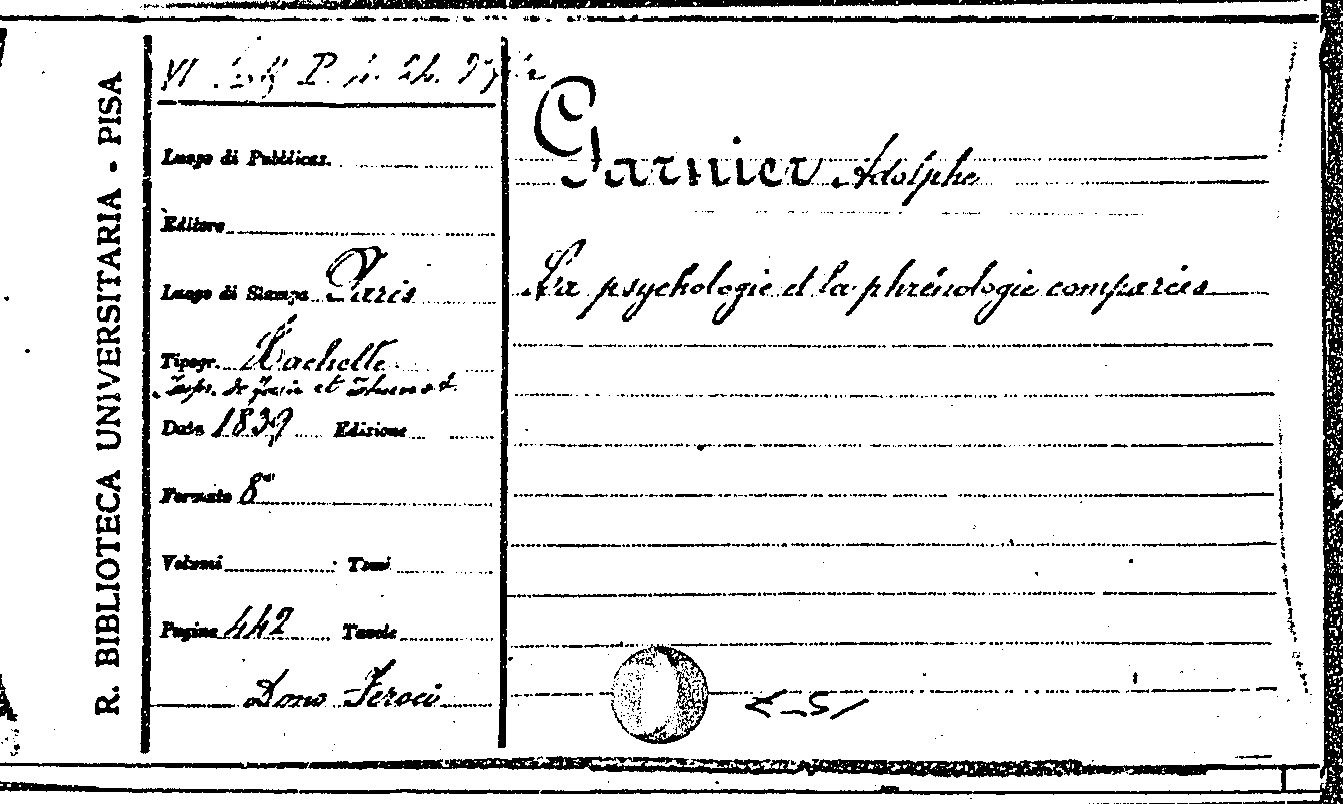 R. BIBLIOTECA UNIVERSITARIA - PISA
VI
Luogo di Pubblicaz.
Editore
Luogo di Stampa Paris
Tipogr. Hachette
Imp. de et Thunot
Date 1839 Edizione
Formato 8°
Volumi Tomi
Pagine 442 Tavole
Dono Feroci
Garnier Adolphe
La psychologie et la phrénologie comparées